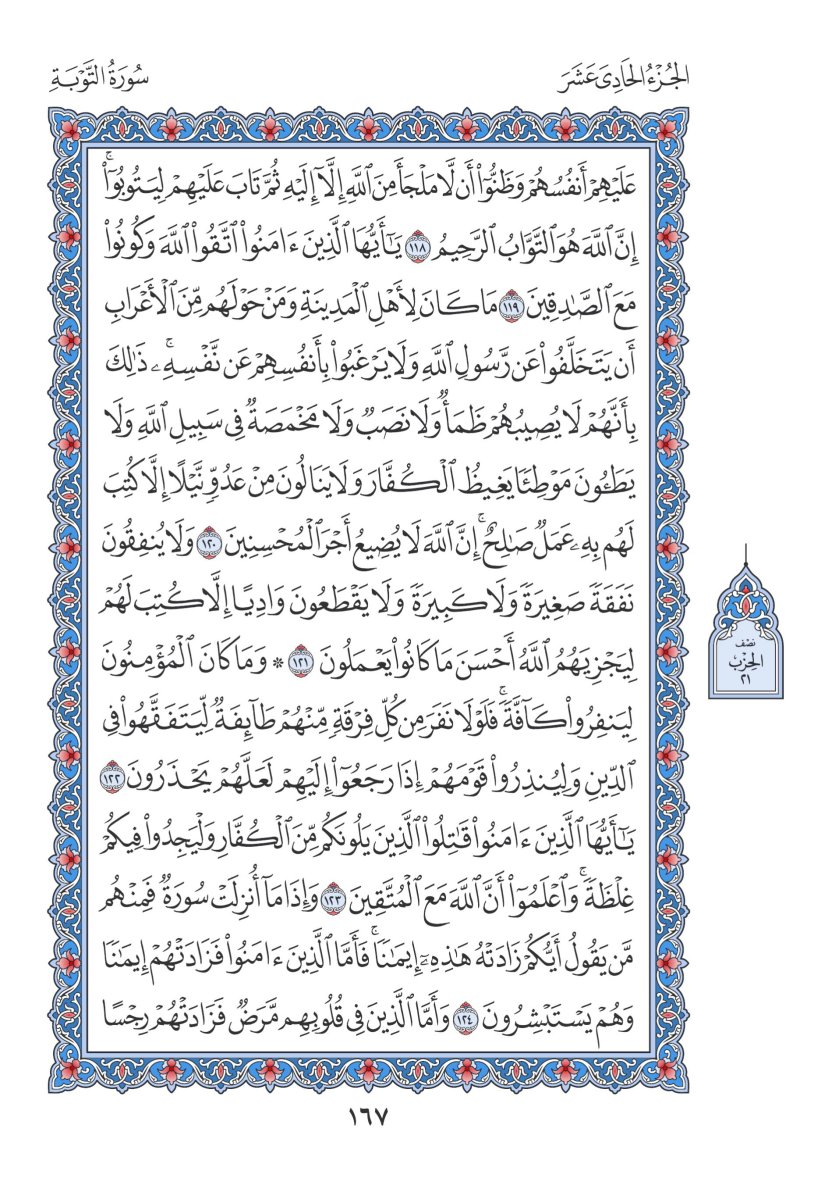 الجُزْءُ الحَادِى عَشَرَ
سُورَةُ التَّوْبَةِ
عَلَيْهِمْ أَنفُسُهُمْ وَظَنُّوٓا۟ أَن لَّا مَلْجَأَ مِنَ ٱللَّهِ إِلَّآ إِلَيْهِ ثُمَّ تَابَ عَلَيْهِمْ لِيَتُوبُوٓا۟ۚ
إِنَّ ٱللَّهَ هُوَ ٱلتَّوَّابُ ٱلرَّحِيمُ ١١٨ يَـٰٓأَيُّهَا ٱلَّذِينَ ءَامَنُوا۟ ٱتَّقُوا۟ ٱللَّهَ وَكُونُوا۟
مَعَ ٱلصَّـٰدِقِينَ ١١٩ مَا كَانَ لِأَهْلِ ٱلْمَدِينَةِ وَمَنْ حَوْلَهُم مِّنَ ٱلْأَعْرَابِ
أَن يَتَخَلَّفُوا۟ عَن رَّسُولِ ٱللَّهِ وَلَا يَرْغَبُوا۟ بِأَنفُسِهِمْ عَن نَّفْسِهِۦۚ ذَٰلِكَ
بِأَنَّهُمْ لَا يُصِيبُهُمْ ظَمَأٌ وَلَا نَصَبٌ وَلَا مَخْمَصَةٌ فِى سَبِيلِ ٱللَّهِ وَلَا
يَطَـُٔونَ مَوْطِئًا يَغِيظُ ٱلْكُفَّارَ وَلَا يَنَالُونَ مِنْ عَدُوٍّ نَّيْلًا إِلَّا كُتِبَ
لَهُم بِهِۦ عَمَلٌ صَـٰلِحٌۚ إِنَّ ٱللَّهَ لَا يُضِيعُ أَجْرَ ٱلْمُحْسِنِينَ ١٢٠ وَلَا يُنفِقُونَ
نَفَقَةً صَغِيرَةً وَلَا كَبِيرَةً وَلَا يَقْطَعُونَ وَادِيًا إِلَّا كُتِبَ لَهُمْ
لِيَجْزِيَهُمُ ٱللَّهُ أَحْسَنَ مَا كَانُوا۟ يَعْمَلُونَ ١٢١ * وَمَا كَانَ ٱلْمُؤْمِنُونَ
لِيَنفِرُوا۟ كَآفَّةًۚ فَلَوْلَا نَفَرَ مِن كُلِّ فِرْقَةٍ مِّنْهُمْ طَآئِفَةٌ لِّيَتَفَقَّهُوا۟ فِى
ٱلدِّينِ وَلِيُنذِرُوا۟ قَوْمَهُمْ إِذَا رَجَعُوٓا۟ إِلَيْهِمْ لَعَلَّهُمْ يَحْذَرُونَ ١٢٢
يَـٰٓأَيُّهَا ٱلَّذِينَ ءَامَنُوا۟ قَـٰتِلُوا۟ ٱلَّذِينَ يَلُونَكُم مِّنَ ٱلْكُفَّارِ وَلْيَجِدُوا۟ فِيكُمْ
غِلْظَةًۚ وَٱعْلَمُوٓا۟ أَنَّ ٱللَّهَ مَعَ ٱلْمُتَّقِينَ ١٢٣ وَإِذَا مَآ أُنزِلَتْ سُورَةٌ فَمِنْهُم
مَّن يَقُولُ أَيُّكُمْ زَادَتْهُ هَـٰذِهِۦٓ إِيمَـٰنًاۚ فَأَمَّا ٱلَّذِينَ ءَامَنُوا۟ فَزَادَتْهُمْ إِيمَـٰنًا
وَهُمْ يَسْتَبْشِرُونَ ١٢٤ وَأَمَّا ٱلَّذِينَ فِى قُلُوبِهِم مَّرَضٌ فَزَادَتْهُمْ رِجْسًا
نصف
الحزب
٢١
١٦٧